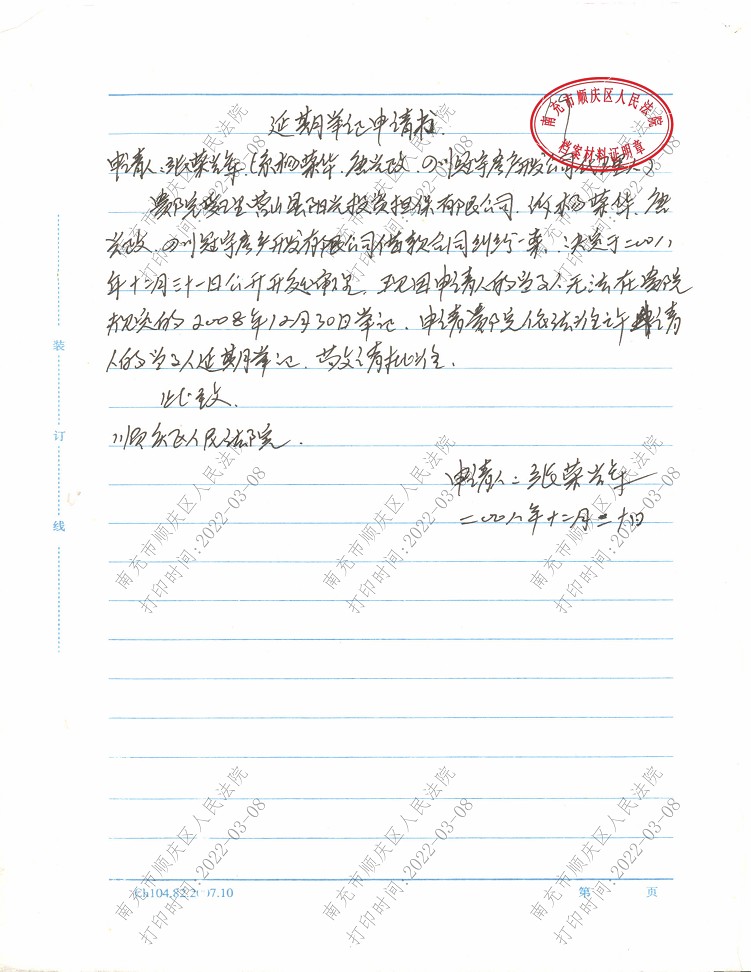 延期举证申请书
申请人:张荣年(系杨荣华、唐兴政、四川冠宇房产开发公司代理人)
贵院受理营山县阳光投资担保有限公司诉杨荣华、唐
兴政、四川冠宇房产开发有限公司借款合同纠纷一案,决定于二00八
年十二月三十一日公开开庭审理,现因申请人的当事人无法在贵院
规定的2008年12月30日举证,申请贵院依法准许申请
人的当事人延期举证,特致请批准.
此致.
顺庆区人民法院.
申请人:张荣年
二00八年十二月三十日
南充市顺庆区人民法院
档案材料证明章
装
订
线
第 页
南充市顺庆区人民法院
打印时间:2022-03-08
南充市顺庆区人民法院
打印时间:2022-03-08
南充市顺庆区人民法院
打印时间:2022-03-08
南充市顺庆区人民法院
打印时间:2022-03-08
南充市顺庆区人民法院
打印时间:2022-03-08
南充市顺庆区人民法院
打印时间:2022-03-08
南充市顺庆区人民法院
打印时间:2022-03-08
南充市顺庆区人民法院
打印时间:2022-03-08
南充市顺庆区人民法院
打印时间:2022-03-08